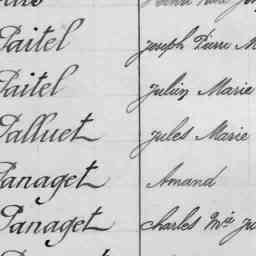 Paitel Joseph Pierre M
Paitel Julien Marie
Palluet Jules Marie
Panaget Amand
Panaget Charles Mie Ju